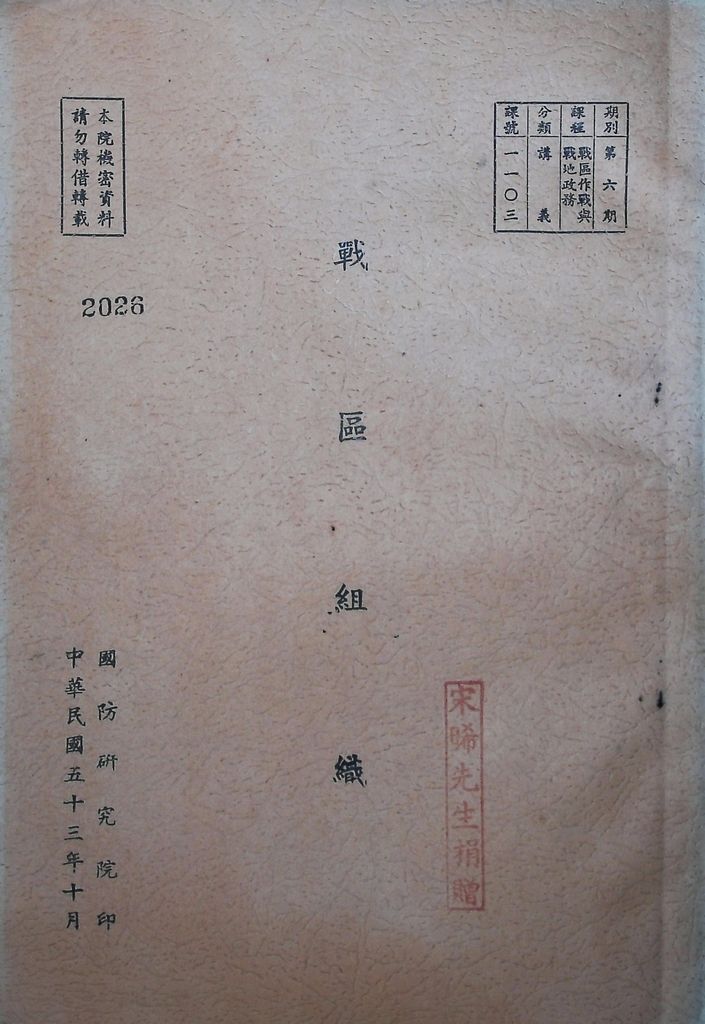 期別 第六期
課程 戰區作戰與
戰地政務
分類 講義
課號 一一〇三
戰區組織
宋晞先生捐贈
本院機密資料
請勿轉借轉載
2026
國防研究院印
中華民國五十三年十月